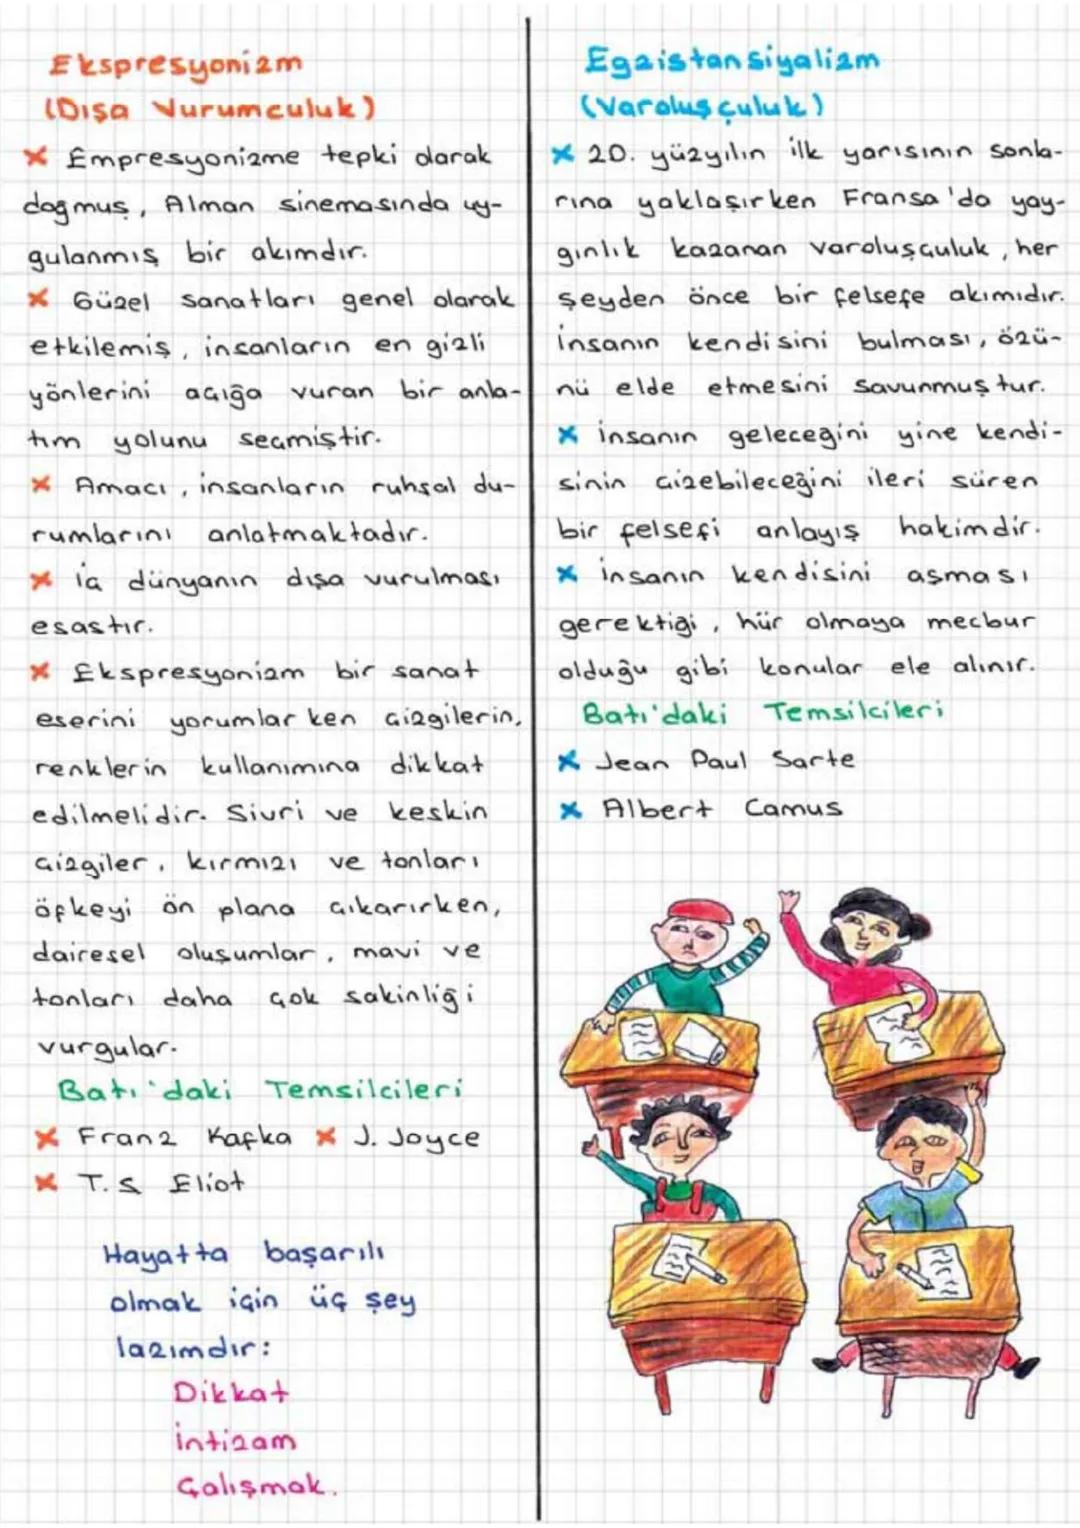 Ekspresyonizm
(Dışa Vurumculuk)
x Empresyonizme tepki olarak
doğmuş, Alman sinemasında uy-
gulanmış bir akımdır.
x Güzel sanatları genel olarak
etkilemiş, insanların en gizli
yönlerini açığa vuran bir anla-
tım yolunu seçmiştir.
x Amacı, insanların ruhsal du-
rumlarını anlatmaktadır.
x İç dünyanın dışa vurulması
esastır.
x Ekspresyonizm bir sanat
eserini yorumlarken çizgilerin,
renklerin kullanımına dikkat
edilmelidir. Sivri ve keskin
çizgiler, kırmızı ve tonları
öfkeyi ön plana çıkarırken,
dairesel oluşumlar, mavi ve
tonları daha çok sakinliği
vurgular.
Batı'daki Temsilcileri
x Franz Kafka x J. Joyce
x T.S Eliot
Hayatta başarılı
olmak için üç şey
lazımdır:
Dikkat
İntizam
Çalışmak.
Egzistansiyalizm
(Varoluşçuluk)
x 20. yüzyılın ilk yarısının sonla-
rına yaklaşırken Fransa'da yay-
gınlık kazanan varoluşçuluk, her
şeyden önce bir felsefe akımıdır.
İnsanın kendisini bulması, özü-
nü elde etmesini savunmuştur.
x İnsanın geleceğini yine kendi-
sinin çizebileceğini ileri süren
bir felsefi anlayış hakimdir.
x İnsanın kendisini aşması
gerektiği, hür olmaya mecbur
olduğu gibi konular ele alınır.
Batı'daki Temsilcileri
x Jean Paul Sarte
x Albert Camus